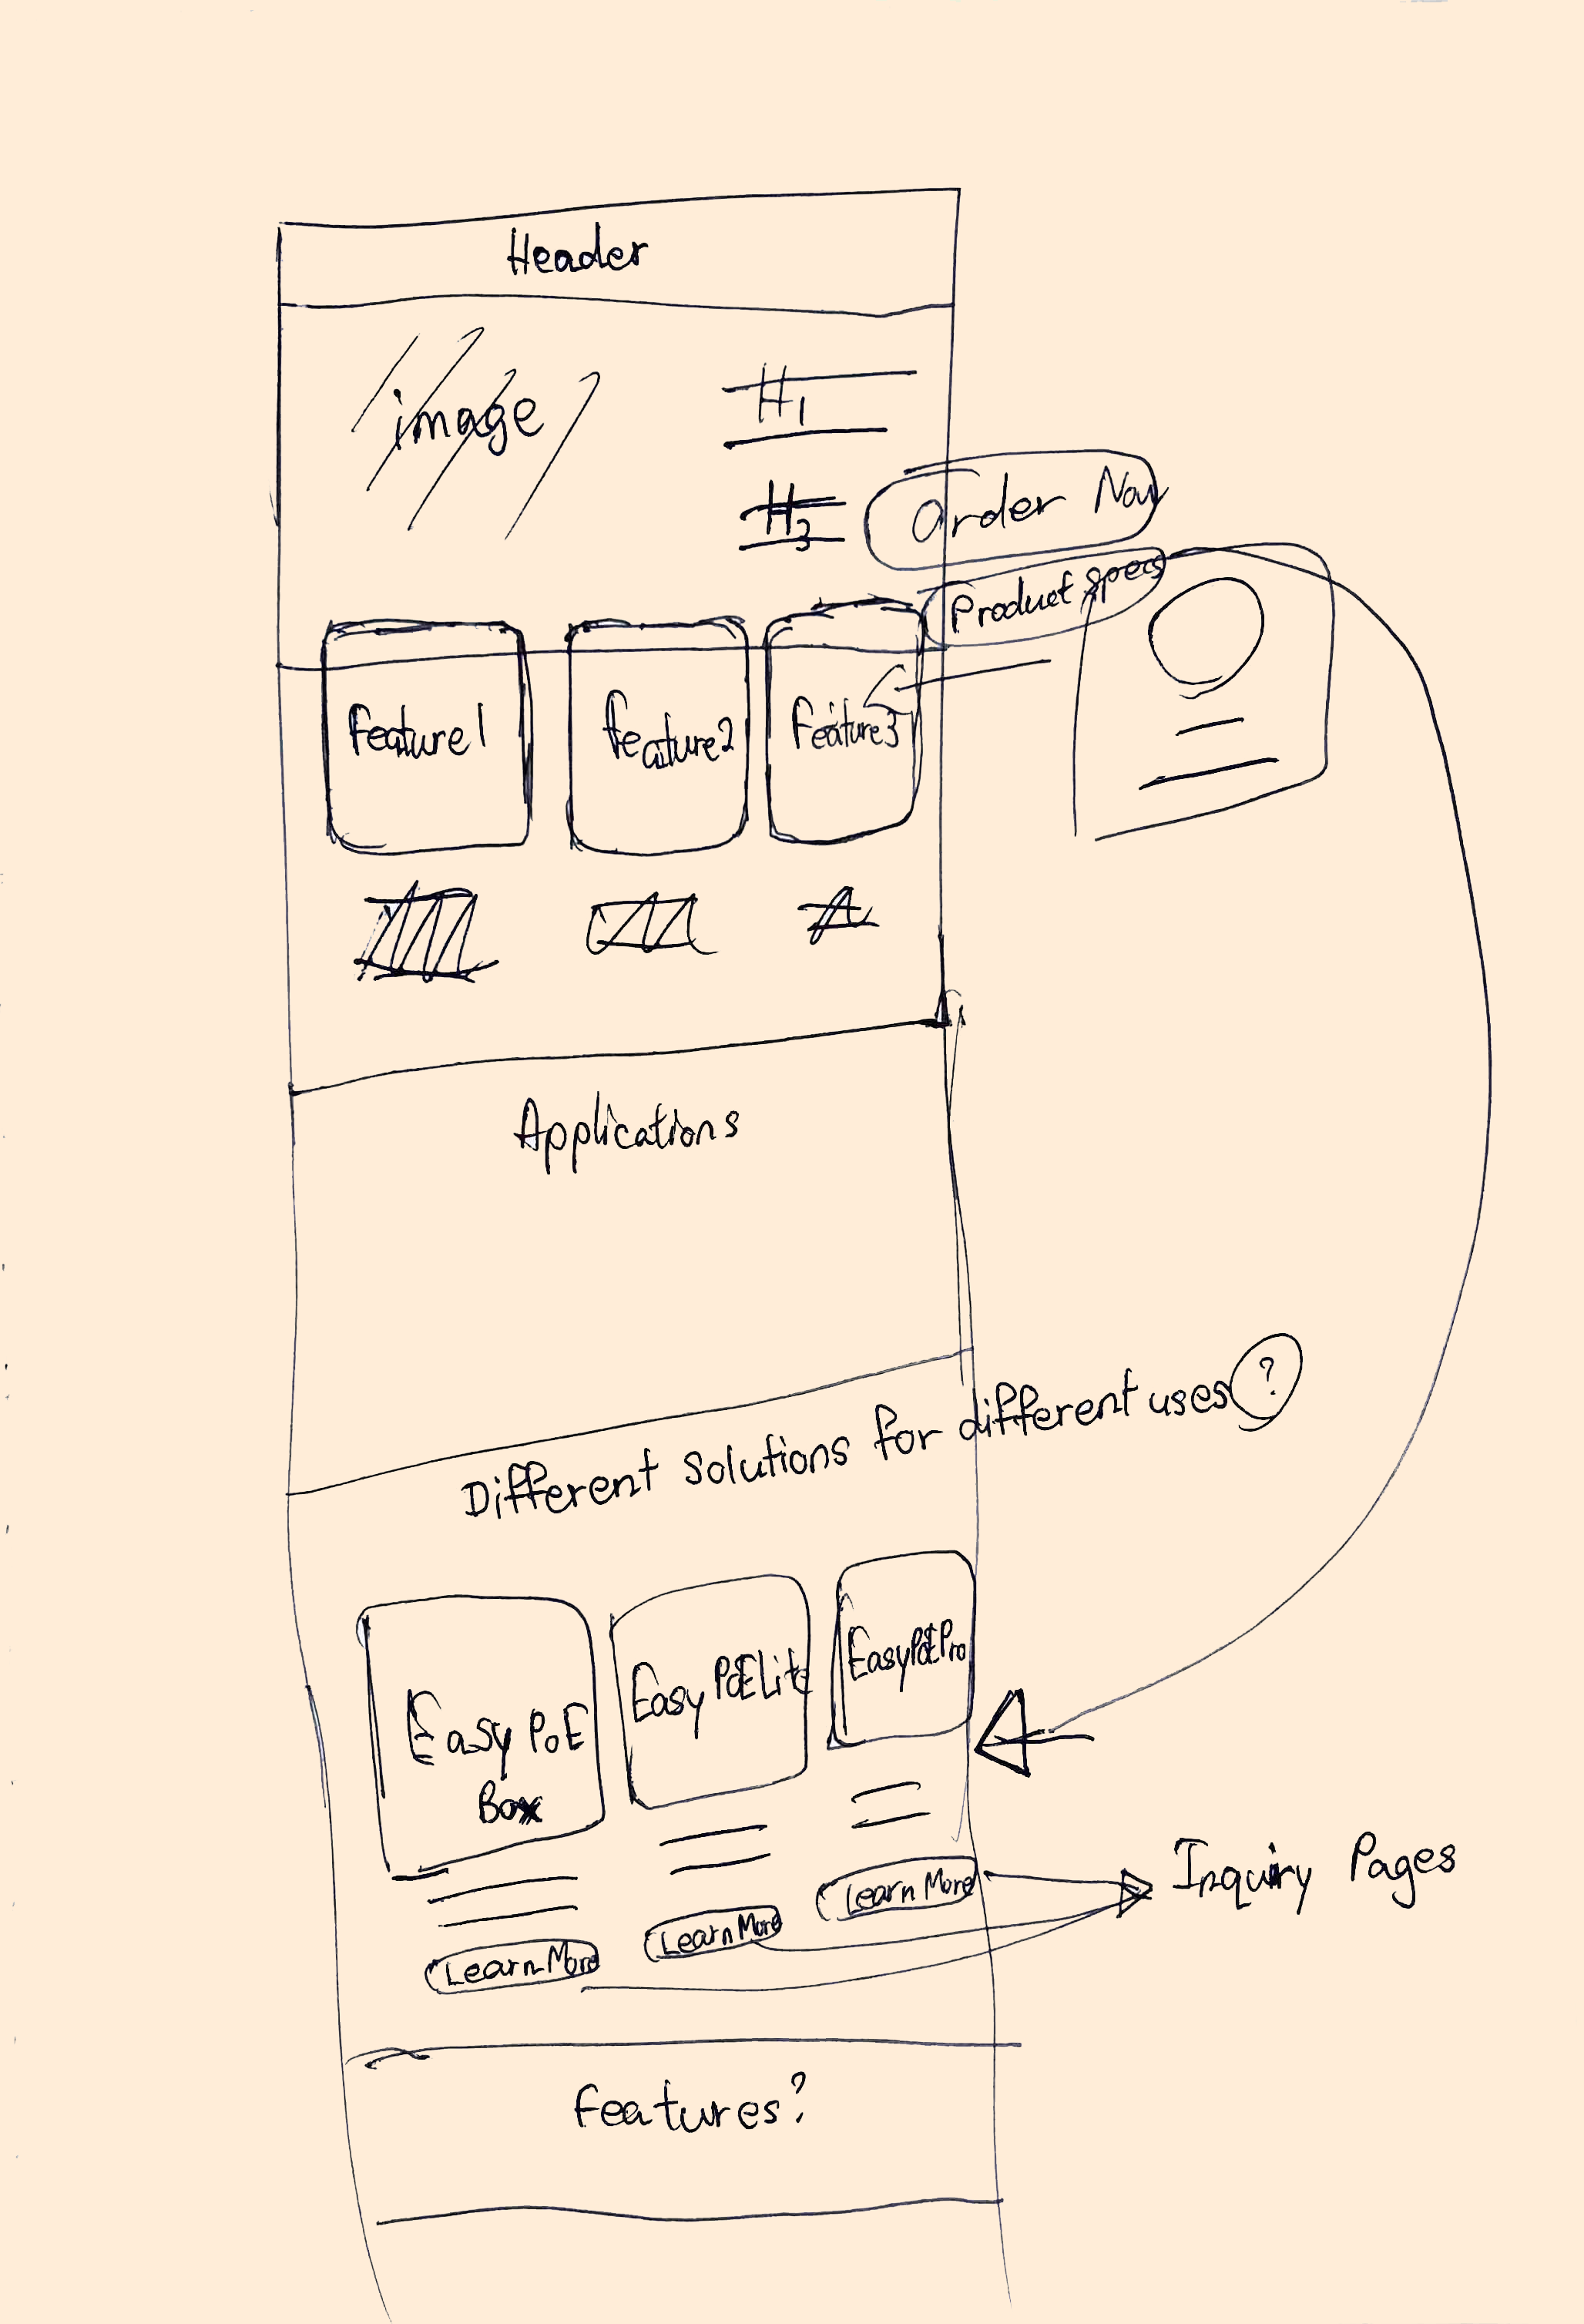 Header
image
H1
H3
Order Now
Product specs
Feature1
Feature2
Feature3
Applications
Different Solutions for different uses ?
Easy PoE
Box
Easy PoE Lite
Easy PoE Pro
Learn More
Learn More
Learn More
Inquiry Pages
Features?